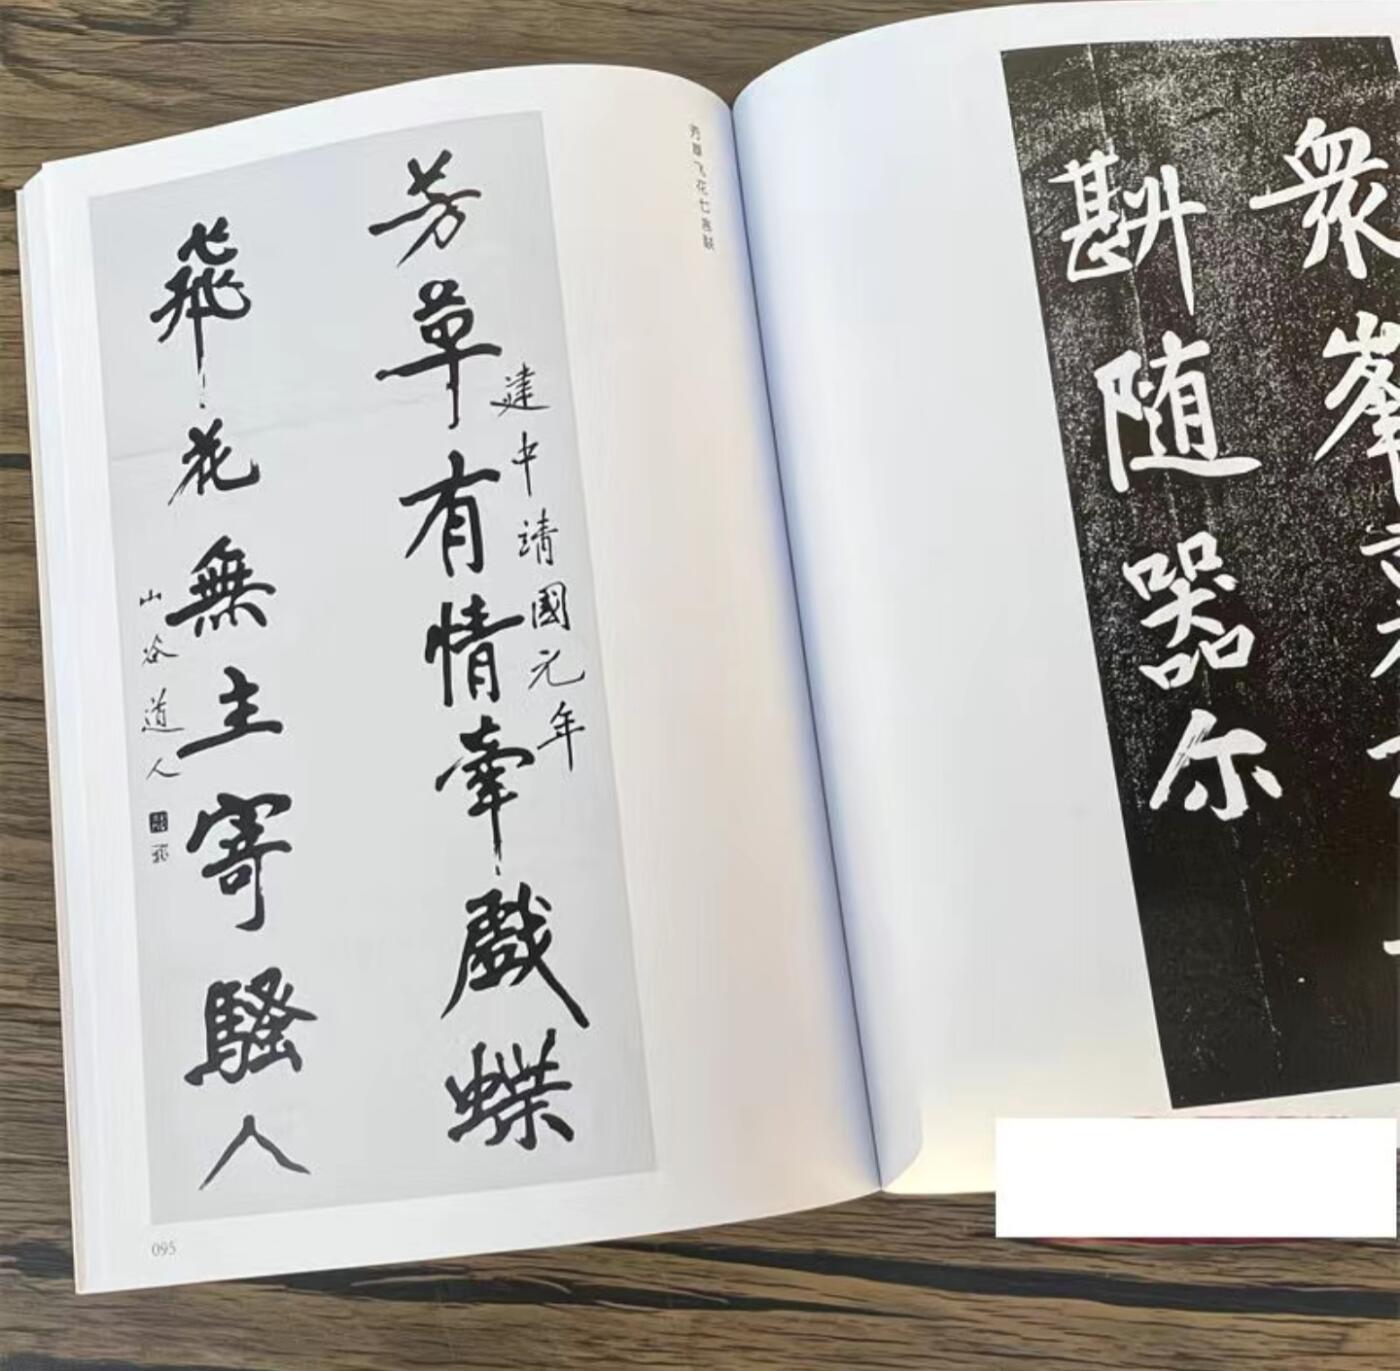 芳草飞花七言联
建中靖國元年
芳草有情牽戲蝶
飛花無主寄騷人
山谷道人
095
衆
斟随器尔